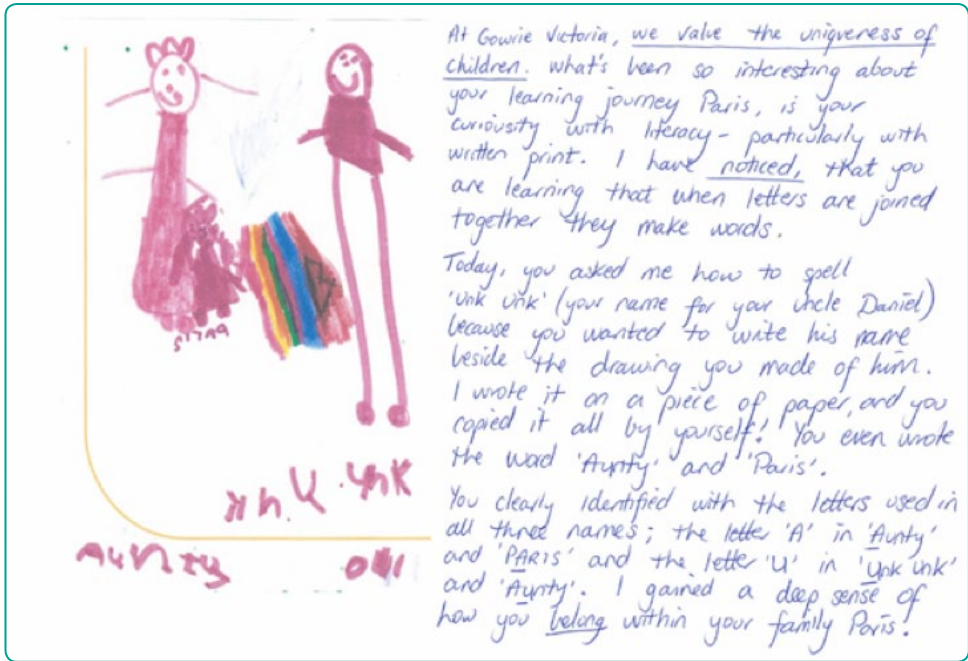 At Gowrie Victoria, we value the uniqueness of
children. What's been so interesting about
your learning journey Paris, is your
curiousity with literacy - particularly with
written print. I have noticed, that you
are learning that when letters are joined
together they make words.
Today, you asked me how to spell
'Unk Unk' (your name for your uncle Daniel)
because you wanted to write his name
beside the drawing you made of him.
I wrote it on a piece of paper, and you
copied it all by yourself! You even wrote
the word 'Aunty' and 'Paris'.
You clearly identified with the letters used in
all three names; the letter 'A' in 'Aunty'
and 'PARIS' and the letter 'U' in 'Unk Unk'
and 'Aunty'. I gained a deep sense of
how you belong within your family Paris.
Aunty